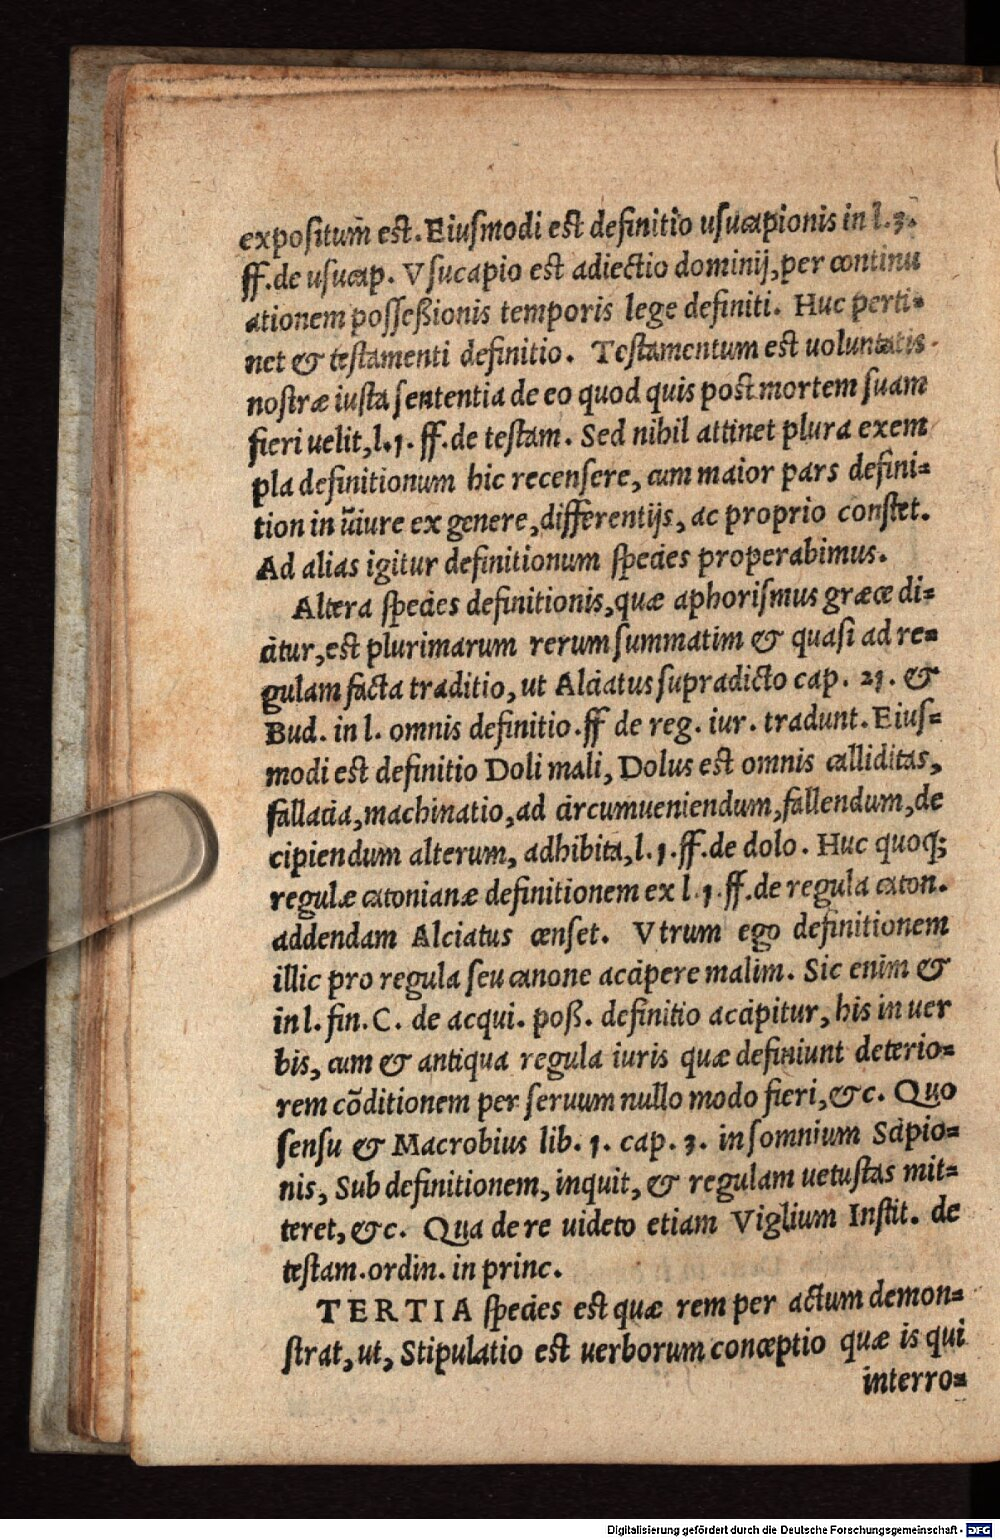 expositum est. Eiusmodi est definitio usucapionis in l. 3.
ff. de usucap. Vsucapio est adiectio dominij, per continu
ationem posseßionis temporis lege definiti. Huc perti=
net & testamenti definitio. Testamentum est uoluntatis
nostræ iusta sententia de eo quod quis post mortem suam
fieri uelit, l. 1. ff. de testam. Sed nihil attinet plura exem
pla definitionum hic recensere, cum maior pars defini=
tion in iure ex genere, differentijs, ac proprio constet.
Ad alias igitur definitionum species properabimus.
Altera species definitionis, quæ aphorismus græce di=
citur, est plurimarum rerum summatim & quasi ad re=
gulam facta traditio, ut Alciatus supradicto cap. 21. &
Bud. in l. omnis definitio. ff de reg. iur. tradunt. Eius=
modi est definitio Doli mali, Dolus est omnis calliditas,
fallacia, machinatio, ad circumueniendum, fallendum, de
cipiendum alterum, adhibita, l. 1. ff. de dolo. Huc quoq;
regulæ catonianæ definitionem ex l. 1. ff. de regula caton.
addendam Alciatus censet. Vtrum ego definitionem
illic pro regula seu canone accipere malim. Sic enim &
in l. fin. C. de acqui. poß. definitio accipitur, his in uer
bis, cum & antiqua regula iuris quæ definiunt deterio=
rem cõditionem per seruum nullo modo fieri, &c. Quo
sensu & Macrobius lib. 1. cap. 3. in somnium Scipio=
nis, Sub definitionem, inquit, & regulam uetustas mit=
teret, &c. Qua de re uideto etiam Viglium Instit. de
testam. ordin. in princ.
TERTIA species est quæ rem per actum demon=
strat, ut, Stipulatio est uerborum conceptio quæ is qui
interro=
Digitalisierung gefördert durch die Deutsche Forschungsgemeinschaft - DFG